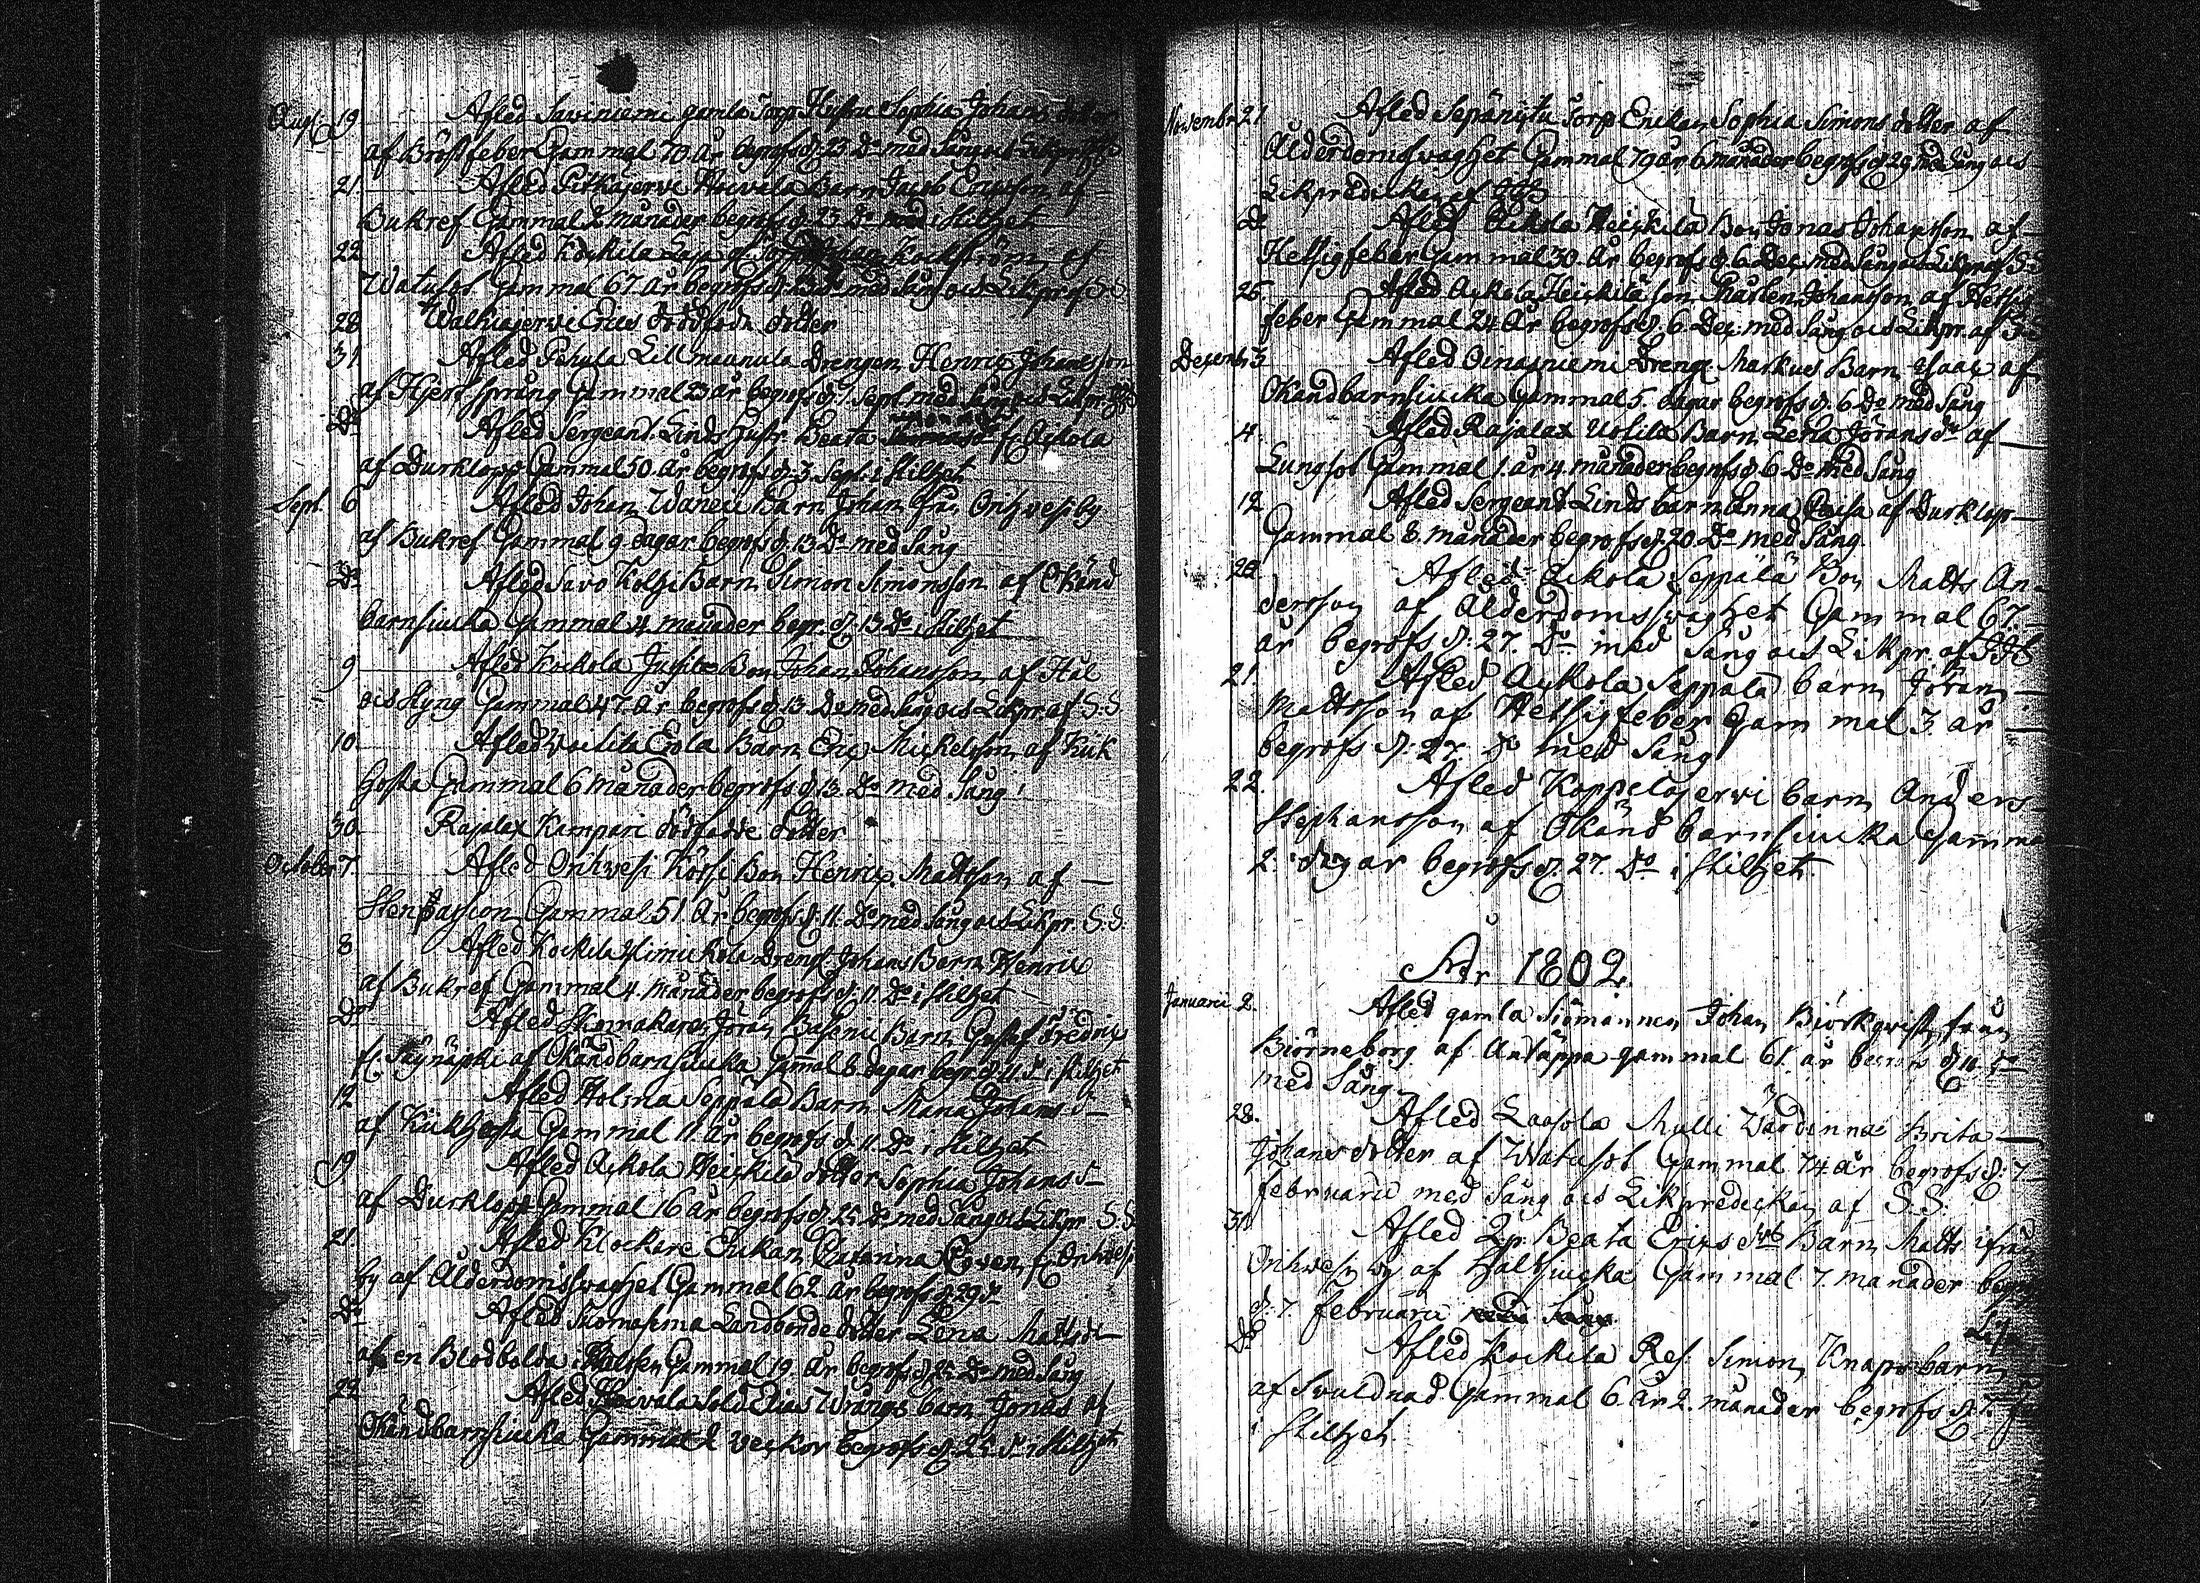 Aug. 19 Afled Saviniemi gamla Torp Hustru Sophia Johans dotter
af Bröstfeber Gammal 70 år begrofs d. 23 Do med Sång och Likpr.
21. Afled Pitkäjervi Hoivala Barn Jacob Ericsson af
Bukref Gammal 2 månader begrofs d. 23 Do i stilhet
22 Afled Kockila Johan Kockström af
Watusot Gammal 67 år begrofs med Sång och Likpr. af
28 Walkiajerwi Erics dödfödde dotter
31 Afled Pohula Lillmaunula Drengen Henric Johansson
af Hjertsprång Gammal 23 år begrofs d. 7 Sept. med Sång och Likpr.
Do Afled Sergeant Linds Hustr. Beata fr. Ackola
af Durklopp Gammal 50 år begrofs d. 3 Sept. i stilhet
Sept. 6 Afled Johan Barn Johan frn Onkwesi by
af Bukref Gammal 9 dagar begrofs d. 13 Do med Sång
Do Afled Savo Kolhi Barn Simon Simonsson af Okänd
barnsiucka Gammal 4 månader begr. d. 13 Do i stilhet
9 Afled Kockola Jussila Bon Johan Johansson af Håll
och Styng Gammal 47 år begrofs d. 13 Do med Sång och Likpr. af S.S.
10. Afled Eola Barn Eric Mickelsson af Kik
hosta Gammal 6 månader begrofs d. 13 Do med Sång
30. Rajalax Kampari dödfödde dotter
October 7. Afled Onkwesi Körsi Bon Henric Mattsson af
Stenpassion Gammal 51 år begrofs d. 11. Do med Sång och Likpr. S.S.
8 Afled Kockila Drengs Johans Barn Henric
af Bukref Gammal 4 månader begrofs d. 11. Do i stilhet
Do Afled Skomakaren Jöran Barn Gustaf Fredric
af Okänd barnsiucka Gammal 8 dagar begr. d. 11. Do i stilhet
12 Afled Holma Seppälä Barn Maria Johans d.
af Kikhosta Gammal 11 år begrofs d. 11. Do i stilhet
19 Afled Ackola Heickilä dotter Sophia Johans d.
af Durklopp Gammal 16 år begrofs d. 25 Do med Sång och Likpr. S.S.
21. Afled Klockare Enkan Susanna fr. Onkwesi
by af Ålderdomsswaghet Gammal 62 år begrofs d. 29 Do
Do Afled Landbonde dotter Lena Matts dr
af en Blodbolda i Halsen Gammal 19 år begrofs d. 25 Do med Sång
22 Afled Sold. Elias Wrångs barn Jonas af
Okänd barnsiucka Gammal 2 veckor begrofs d. 25 Do i stilhet
November 21 Afled Torp Enkan Sophia Simons dotter af
Ålderdomsswaghet Gammal 79 år 6 månader begrofs d. 29 med Sång och
Likpredickan af
Do Afled Ackola Heickilä Bon Jonas Johansson af
Hetsigfeber Gammal 30 år begrofs d. 6 Dec. med Sång och Likpr. af S.S.
25. Afled Ackola Heickilä son Johansson af Hetsig
feber Gammal 24 år begrofs d. 6 Dec. med Sång och Likpr. af S.S.
December 3 Afled Oinasniemi Drengs Markus Barn Isaac af
Okänd barnsiucka Gammal 5 dagar begrofs d. 6 Do med Sång
4. Afled Rajalax Uotila Barn Lena Jörans dr af
Lungsot Gammal 1 år 4 månader begrofs d. 6 Do med Sång
12 Afled Sergeant Linds barn Anna Caisa af Durklop
Gammal 8 månader begrofs d. 20 Do med Sång.
20. Afled Ackola Seppälä Bon Matts An-
dersson af Ålderdomsswaghet Gammal 67.
år begrofs d. 27. Do med Sång och Likpr. af
21 Afled Ackola Seppälä barn Johan
Mattsson af Hetsigfeber Gammal 3 år
begrofs d. 27. Do med Sång
22. Afled Koppelojerwi barn Anders
Stephansson af Okänd barnsiucka Gamma
2. dagar begrofs d. 27. Do i stilhet.
År 1802.
Januarii 2. Afled gamla Siömannen Johan Biörkqvist från
Biörneborg af Andtäppa gammal 61. år begrofs d. 10. Do
med Sång.
28. Afled Laasola Mulli Wärdinna Brita
Johans dotter af Watusot Gammal 74 år begrofs d. 7
Februarii med Sång och Likpredickan af S.S.
31 Afled Beata Erics Barn Matts ifrån
Onkwesi by af Haltsiucka Gammal 7. månader begr
d. 7 Februarii med Sång.
Do Afled Kockila Res. Simon Knaps barn Lisa
af Swullnad Gammal 6 år 2. månader begrofs d. 7.
i stilhet.